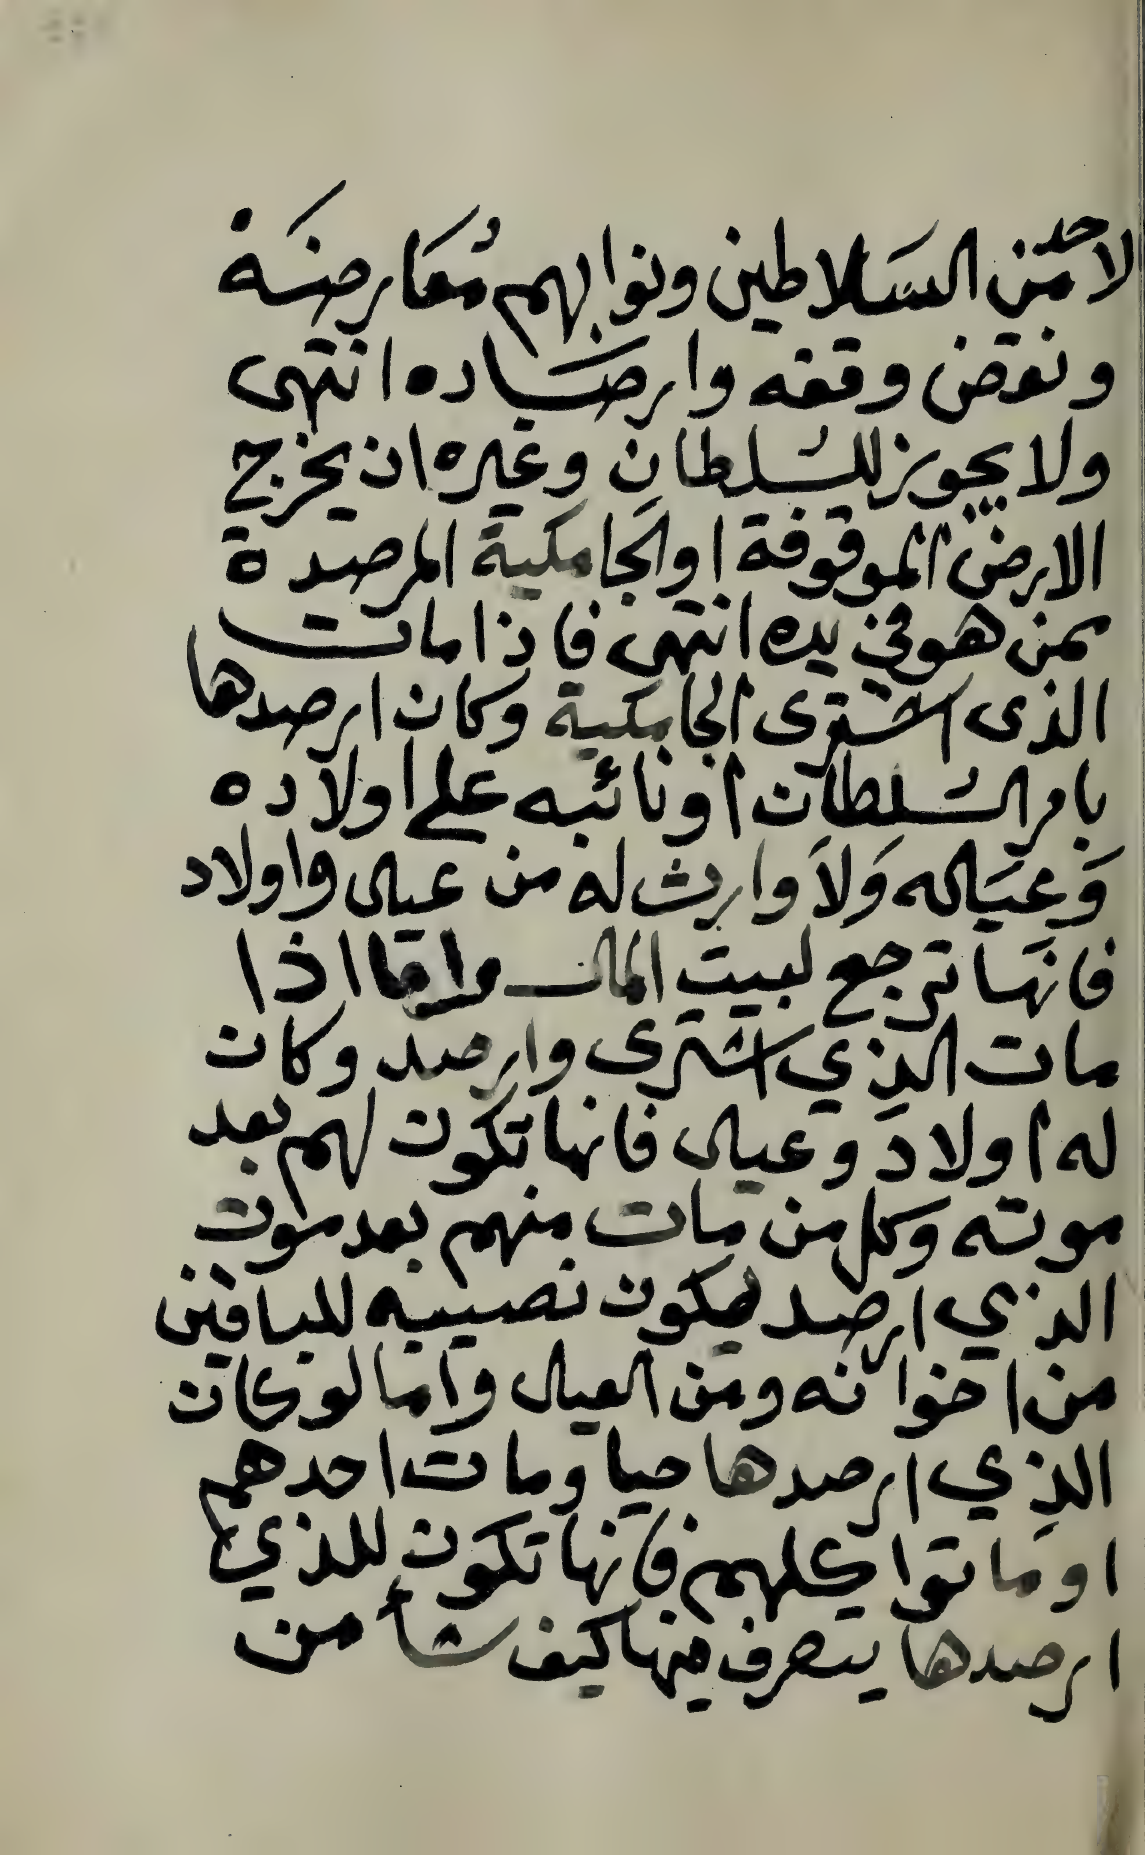 لاحد من السَلاطين ونوابهم مُعَارضَة
ونقض وقفه وارصَاده انتهى
ولا يجوز للسُلطان وغيره ان يخرج
الارض الموقوفة او الجامكية المرصدة
عمن هو في يده انتهى فاذا مات
الذى اشترى الجامكية وكان ارصدها
بامر السُلطان او نائبه على اولاده
وَعيَاله وَلاَ وارث له من عيال واولاد
فانهَا ترجع لبيت المال واما اذا
مات الذي اشترى وارصد وكان
له اولاد وعيال فانها تكون لهم بعد
موته وكل من مات منهم بعد موت
الذي ارصد يكون نصيبه للباقين
من اخوانه ومن العيال واما لو كان
الذي ارصدها حيا ومات احدهم
او ماتوا كلهم فانها تكون للذي
ارصدها يتصرف فيها كيف شأ من